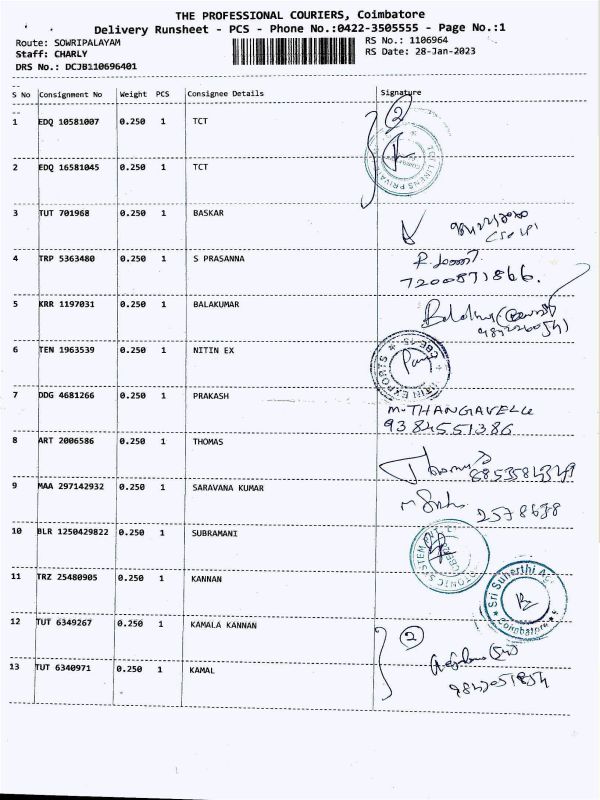 THE PROFESSIONAL COURIERS, Coimbatore
Delivery Runsheet - PCS - Phone No.:0422-3505555 - Page No.:1
Route: SOWRIPALAYAM RS No.: 1106964
Staff: CHARLY RS Date: 28-Jan-2023
DRS No.: DCJB110696401
S No Consignment No Weight PCS Consignee Details Signature
1 EDQ 10581007 0.250 1 TCT 2
2 EDQ 16581045 0.250 1 TCT
TCT LINENS PRIVATE
3 TUT 701968 0.250 1 BASKAR
4 TRP 5363480 0.250 1 S PRASANNA
7200871866.
5 KRR 1197031 0.250 1 BALAKUMAR
6 TEN 1963539 0.250 1 NITIN EX
NITIN EXPORTS CBE-15
7 DDG 4681266 0.250 1 PRAKASH
M. THANGAVELU
9384551386
8 ART 2006586 0.250 1 THOMAS
9 MAA 297142932 0.250 1 SARAVANA KUMAR
2578698
10 BLR 1250429822 0.250 1 SUBRAMANI
11 TRZ 25480905 0.250 1 KANNAN
Sri Suharthi
Coimbatore
12 TUT 6349267 0.250 1 KAMALA KANNAN 2
13 TUT 6340971 0.250 1 KAMAL